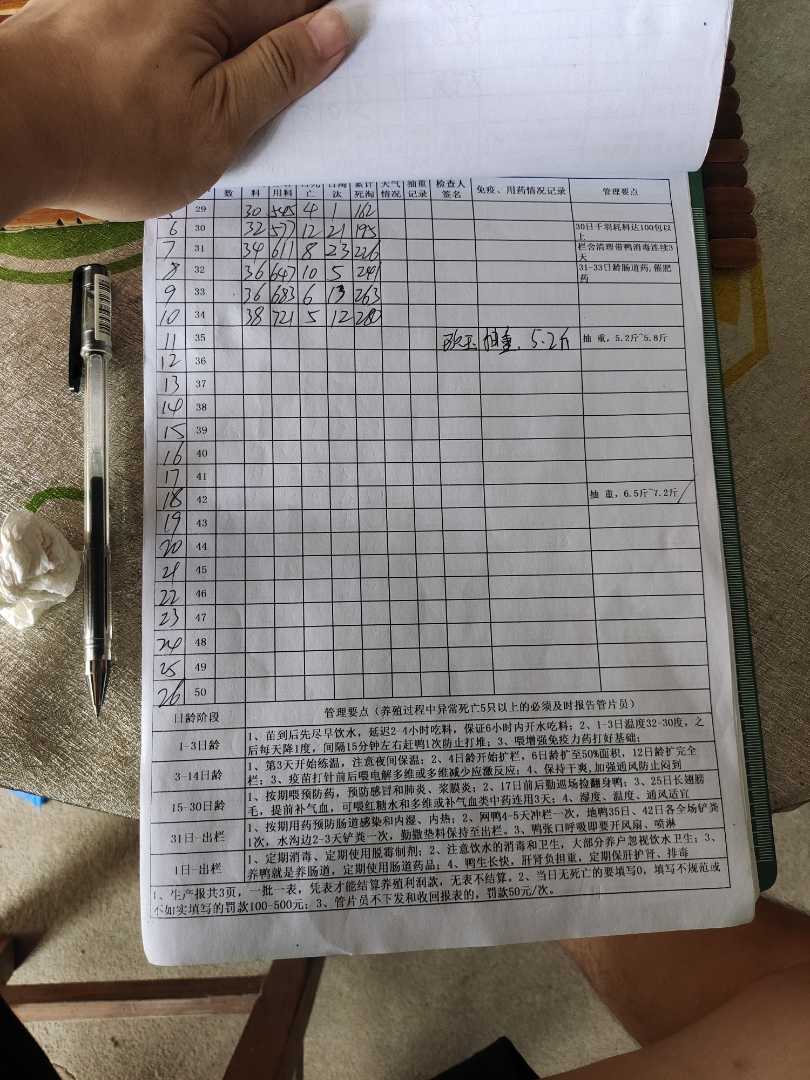 数 料 用料 亡 汰 死淘 情况 抽重记录 检查人签名 免疫、用药情况记录 管理要点
29 30 545 4 1 162
6 30 32 577 12 21 195 30日千羽耗料达100包以上
7 31 34 611 8 23 226 栏舍清理带鸭消毒连续3天
8 32 36 647 10 5 241 31-33日龄肠道药,催肥药
9 33 36 683 6 13 263
10 34 38 721 5 12 280
11 35 抽重, 5.2斤 抽 重，5.2斤~5.8斤
12 36
13 37
14 38
15 39
16 40
17 41
18 42 抽 重，6.5斤~7.2斤
19 43
20 44
21 45
22 46
23 47
24 48
25 49
26 50
日龄阶段 管理要点（养殖过程中异常死亡5只以上的必须及时报告管片员）
1-3日龄 1、苗到后先尽早饮水，延迟2-4小时吃料，保证6小时内开水吃料；2、1-3日温度32-30度，之
后每天降1度，间隔15分钟左右赶鸭1次防止打堆；3、喂增强免疫力药打好基础；
3-14日龄 1、第3天开始练温，注意夜间保温；2、4日龄开始扩栏，6日龄扩至50%面积，12日龄扩完全
栏；3、疫苗打针前后喂电解多维或多维减少应激反应；4、保持干爽,加强通风防止闷到
15-30日龄 1、按期喂预防药，预防感冒和肺炎、浆膜炎；2、17日前后勤巡场捡翻身鸭；3、25日长翅膀
毛，提前补气血，可喂红糖水和多维或补气血类中药连用3天；4、湿度、温度、通风适宜
31日-出栏 1、按期用药预防肠道感染和内湿、内热；2、网鸭4-5天冲栏一次，地鸭35日、42日各全场铲粪
1次，水沟边2-3天铲粪一次，勤撒垫料保持至出栏。3、鸭张口呼吸即要开风扇、喷淋
1日-出栏 1、定期消毒、定期使用脱霉制剂；2、注意饮水的消毒和卫生，大部分养户忽视饮水卫生；3、
养鸭就是养肠道，定期使用肠道药品；4、鸭生长快，肝肾负担重，定期保肝护肾、排毒
1、生产报共3页，一批一表，凭表才能结算养殖利润款，无表不结算。2、当日无死亡的要填写0，填写不规范或
不如实填写的罚款100-500元；3、管片员不下发和收回报表的，罚款50元/次。